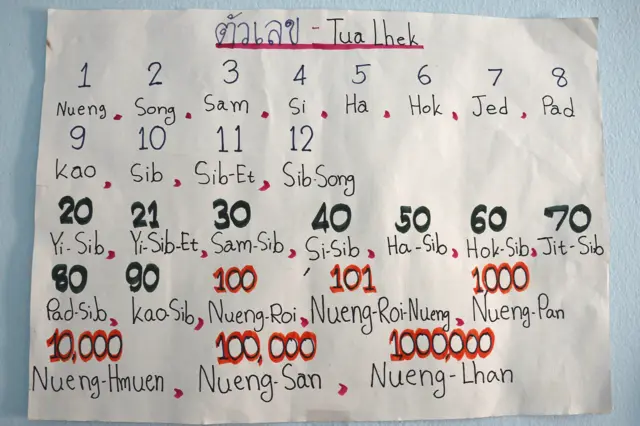 ตัวเลข - Tua Lhek
1 2 3 4 5 6 7 8
Nueng, Song, Sam, Si, Ha, Hok, Jed, Pad
9 10 11 12
Kao, Sib, Sib-Et, Sib-Song
20 21 30 40 50 60 70
Yi-Sib, Yi-Sib-Et, Sam-Sib, Si-Sib, Ha-Sib, Hok-Sib, Jit-Sib
80 90 100 101 1000
Pad-Sib, Kao-Sib, Nueng-Roi, Nueng-Roi-Nueng, Nueng-Pan
10,000 100,000 1000,000
Nueng-Hmuen, Nueng-San, Nueng-Lhan